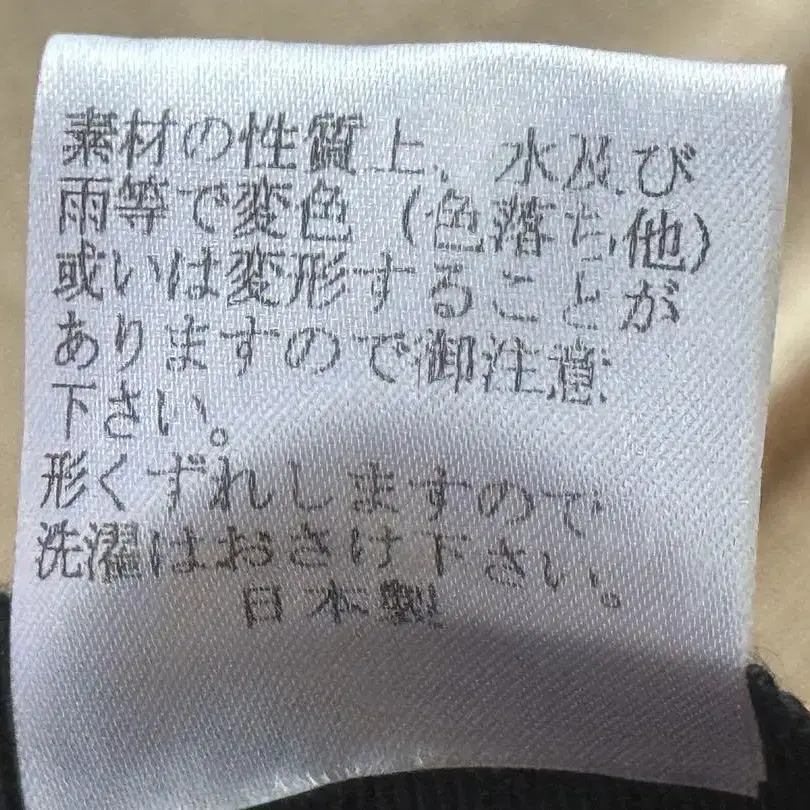 素材の性質上、水及び
雨等で変色(色落ち他)
或いは変形することが
ありますので御注意
下さい。
形くずれしますので
洗濯はおさけ下さい。
日本製